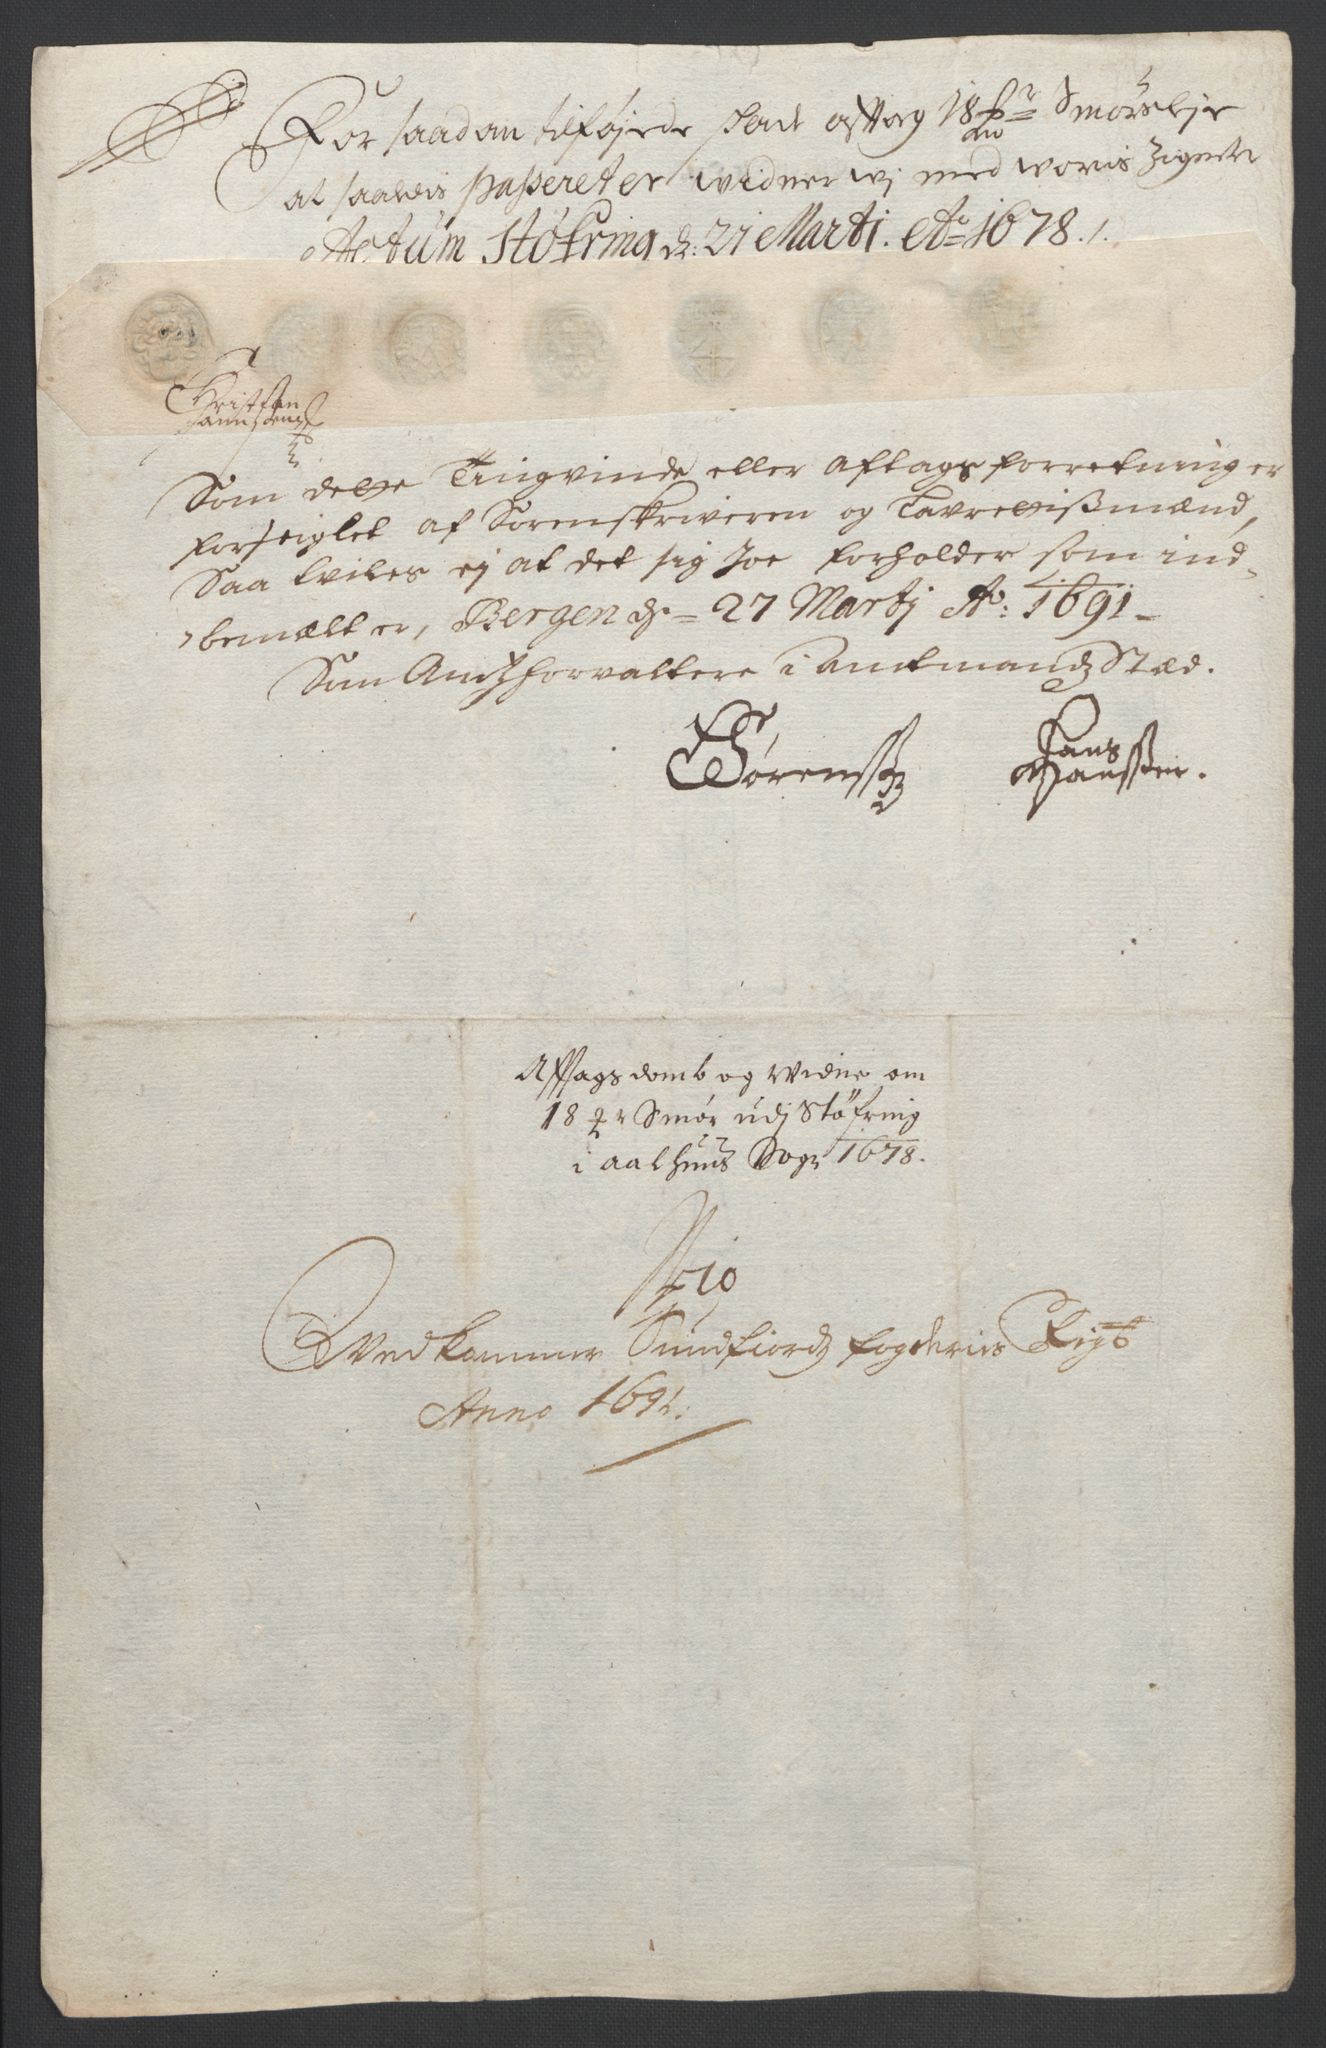 For saadan tilføjede skade afftag 18 mr Smørs leje
at saaledis passeret er widner wj med woris Zigneter
Actum Støfring d: 21 Martj. Ao 1678.
Christian
Som dette Tingvinde eller aftags forretning er
forseiglet af Sorenskriveren og Laurettismænd,
Saa tviles ej at det sig Joe forholder som ind-
bemælt er, Bergen d = 27 Martj Ao: 1691
Som Amtzforvaltere i Amtmandz Stæd.
Sørenss
Hans
Hanssen.
Afftags domb og widne om
18 mr Smør udj Støfring
i aalhuus Sogn 1678.
No 10
Vedkommer Sundfiordz fogderies Regsk
Anno 1691.